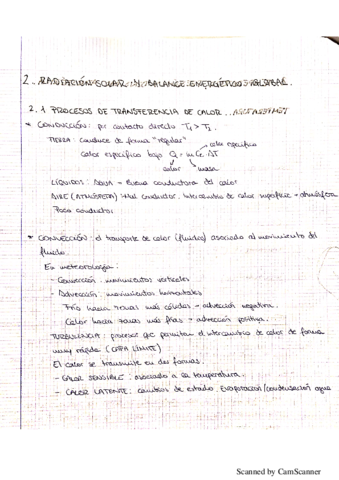 2. RADIACIÓN SOLAR Y BALANCE ENERGÉTICO GLOBAL
2.1 PROCESOS DE TRANSFERENCIA DE CALOR
* CONDUCCIÓN: por contacto directo T1 > T2
TIERRA: conduce de forma "regular" calor específico
Calor específico bajo Q = m Ce ΔT
calor masa
LÍQUIDOS: AGUA - Buena conductora de calor
AIRE (ATMÓSFERA) - Mal conductor. Intercambio de calor superficie - atmósfera
Poco conductor
* CONVECCIÓN: el transporte de calor (fluidos) asociado al movimiento del
fluido.
En meteorología:
- Convección: movimientos verticales
- Advección: movimientos horizontales
Frío hacia zonas más cálidas - advección negativa.
Calor hacia zonas más frías - advección positiva.
TURBULENCIA: procesos que permiten el intercambio de calor de forma
muy rápida (CAPA LÍMITE)
El calor se transmite en dos formas.
- CALOR SENSIBLE: asociado a la temperatura.
- CALOR LATENTE: cambios de estado. Evaporación/condensación agua
Scanned by CamScanner